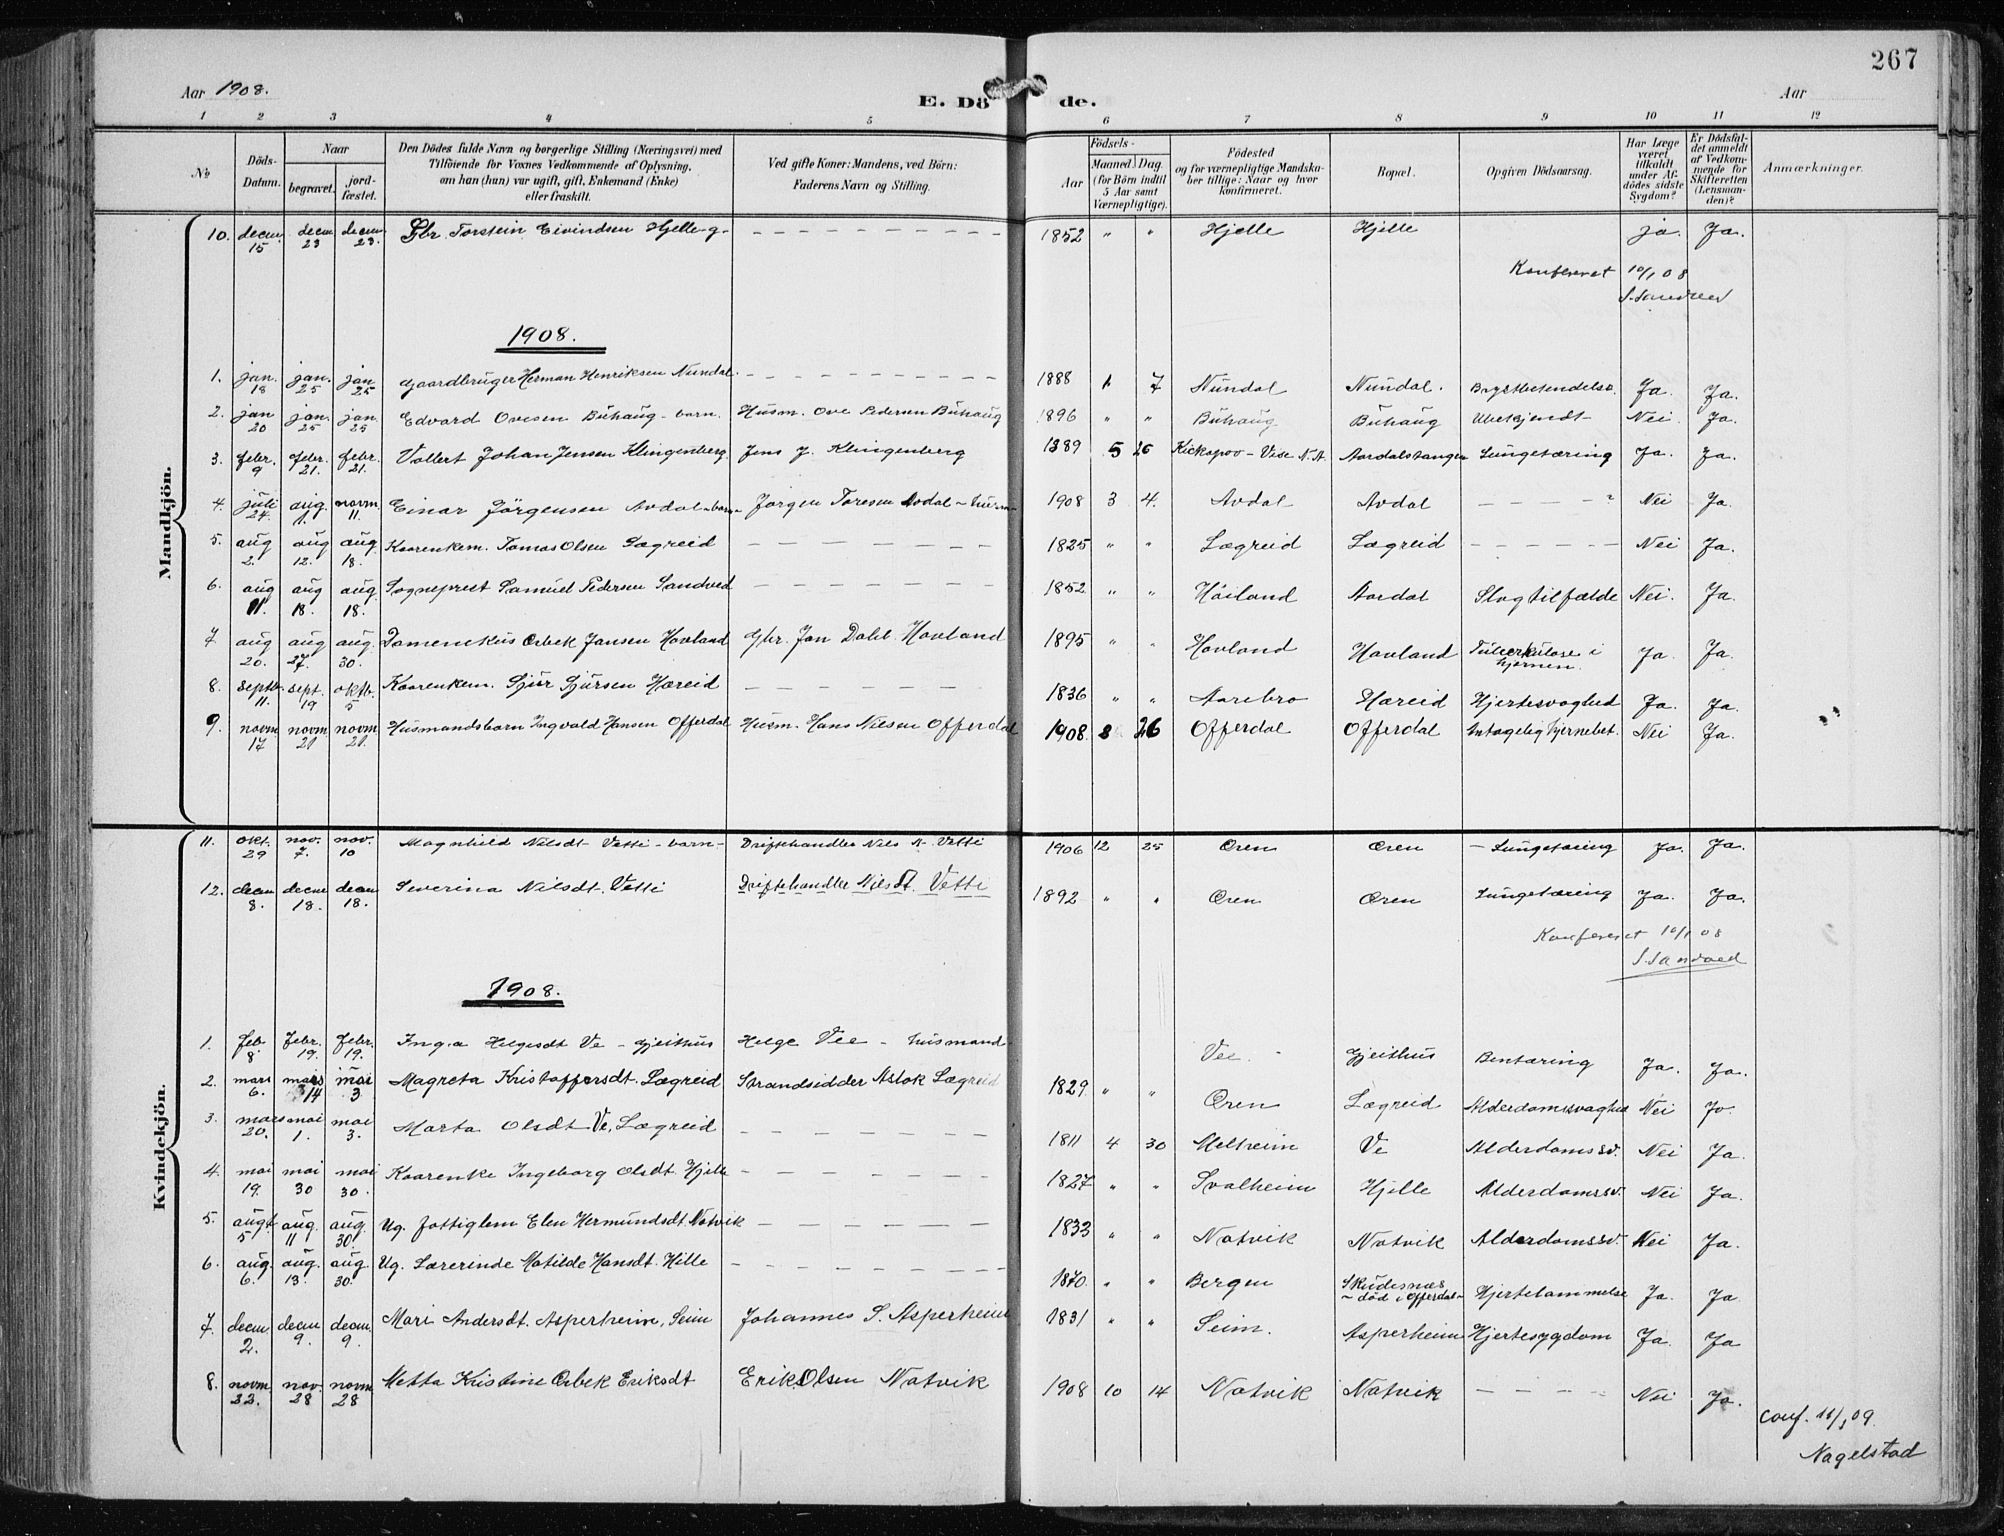 267
Aar 1908.
E. Dö de.
Aar
1 2 3 4 5 6 7 8 9 10 11 12
№
Döds-Datum.
Naar
begravet.
jord-fæstet.
Den Dödes fulde Navn og borgerlige Stilling (Næringsvei) med
Tilföiende for Voxnes Vedkommende af Oplysning,
om han (hun) var ugift, gift, Enkemand (Enke)
eller fraskilt.
Ved gifte Koner: Mandens, ved Börn:
Faderens Navn og Stilling.
Födsels-
Aar
Maaned. Dag.
(for Börn indtil
5 Aar samt
Værnepligtige).
Födested
og for værnepligtige Mandska-
ber tillige: Naar og hvor
konfirmeret.
Bopæl.
Opgiven Dödsaarsag.
Har Læge
været
tilkaldt
under Af-
dödes sidste
Sygdom?
Er Dödsfal-
det anmeldt
af Vedkom-
mende for
Skifteretten
(Lensman-
den)?
Anmærkninger.
Mandkjön.
10. decm. 15 decm 23 decm 23. Gbr. Torstein Eivindsen Hjelle - g - 1852 " " Hjelle Hjelle ja. Ja.
Konfereret 10/1 08
S. Sandved
1908.
1. jan. 18 jan. 25 jan 25 gaardbruger Herman Henriksen Nundal. 1888 1 7 Nundal Nundal. Ja. Ja.
2. jan 20 jan. 25 jan. 25 Edvard Ovesen Buhaug - barn. Husm. Ove Pedersen Buhaug 1896 " " Buhaug Buhaug Ubekjendt Nei. Ja.
3. febr. 9 febr. 21. febr. 21. Vollert Johan Jensen Klingenberg Jens J. Klingenberg 1889 5 26 Kickapoo - Vise N.A. Aardalstangen Lungetæring Ja. Ja.
4. juli 24. aug. 1. novm. 11. Einar Jörgensen Avdal - barn - Jörgen Toresen Avdal - husm - 1908 3 4. Avdal Avdal ? Nei Ja
5. aug 2. aug 12. aug 18. Kaarenkem. Tomas Olsen Lægreid 1825 " " Lægreid Lægreid Nei Ja.
6. aug 11. aug 18. aug. 18. Sogneprest Samuel Pedersen Sandved 1852 " " Höiland Aardal Slagtilfælde Nei. Ja.
7 aug 20. aug 27. aug. 30. Domenikus Orbek Jansen Hovland Gbr. Jan Dahl Hovland 1895 " " Hovland Hovland Tuberkulose i hjernen. Ja. Ja.
8. septb. 11. sept. 19 oktb. 5 Kaarenkem. Sjur Sjursen Hæreid 1836 " " Aarebro Hæreid Hjertesvaghed Ja. Ja.
9. novm. 17 novm. 21 novm 21. Husmandsbarn Ingvald Hansen Offerdal Husm. Hans Nilsen Offerdal 1908 8 26 Offerdal Offerdal Antagelig hjernebet. Nei Ja.
Kvindekjön.
11. okt. 29 nov. 7. nov. 10 Magnhild Nilsdt. Vetti - barn - Driftehandler Nils A. Vetti 1906 12 25 Øren Øren - Lungetæring Ja. Ja.
12. decm 8. decm 18. decm 18. Severina Nilsdt. Vetti Driftehandler Nils T. Vetti 1892 " " Øren Øren Lungetæring Ja. Ja.
Konfereret 10/1 08
S. Sandved
1908.
1. feb. 8. febr. 19. febr. 19. Inga Helgesdt Ve - Gjeithus Helge Vee - husmand Vee Gjeithus Bentæring Ja. Ja.
2. mars 6. mars 14 mai 3. Magreta Kristoffersdt. Lægreid Strandsidder Aslak Lægreid 1829 " " Øren Lægreid Alderdomssvaghed Nei Ja
3. mars 20. mai 1. mai 3. Marta Olsdt Ve, Lægreid 1811 4 30 Melheim Ve Alderdomssv. Nei Ja.
4. mai 19. mai 30 mai 30. Kaarenke Ingeborg Olsdt. Hjelle 1827 " " Svalheim Hjelle Alderdomssv. Nei Ja.
5. augt 5 aug. 11 aug. 30. Ug. fattiglem Elen Hermundsdt. Natvik 1833 " " Natvik Natvik Alderdomssv. Nei Ja.
6. aug. 6. aug. 13. aug 30. Ug. Lærerinde Matilde Hansdt. Hille 1870. " " Bergen Skudesnæs - död i Offerdal - Hjertelammelse Ja. Ja
7. decm 2. decm 9. decm. 9. Mari Andersdt. Asperheim, Seim Johannes S. Asperheim 1831 " " Seim. Asperheim Hjertesygdom Ja. Ja
8. novm 22. nov. 28 novm 28 Metta Kristine Orbek Eriksdt Erik Olsen Natvik 1908 10 14 Natvik Natvik Nei Ja.
Conf. 11/1 09.
Nagelstad